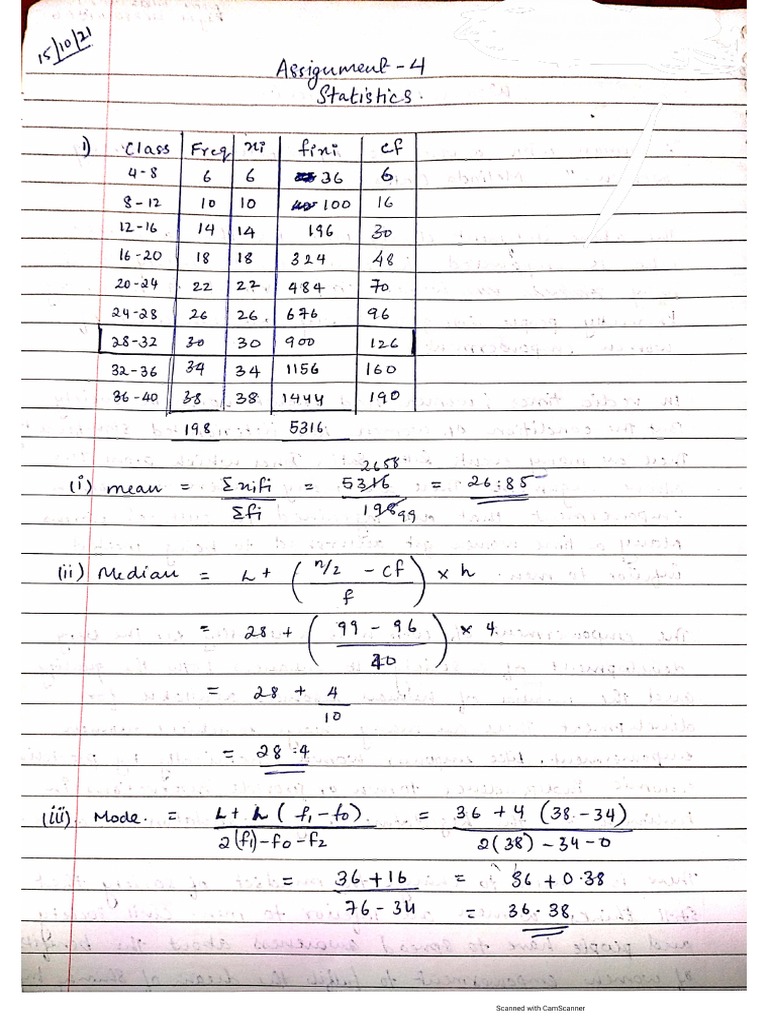 15/10/21
Assignment - 4
Statistics.
1) Class Freq xi fixi cf
4-8 6 6 36 6
8-12 10 10 100 16
12-16 14 14 196 30
16-20 18 18 324 48
20-24 22 22 484 70
24-28 26 26 676 96
28-32 30 30 900 126
32-36 34 34 1156 160
36-40 38 38 1444 190
198 5316
(i) mean = Σxifi / Σfi = 5316 2658 / 198 99 = 26.85
(ii) Median = L + (n/2 - cf / f) × h
= 28 + (99 - 96 / 30) × 4
= 28 + 4/10
= 28.4
(iii) Mode = L + h (f1 - f0) / 2(f1) - f0 - f2 = 36 + 4 (38 - 34) / 2(38) - 34 - 0
= 36 + 16 / 76 - 34 = 36 + 0.38
= 36.38
Scanned with CamScanner